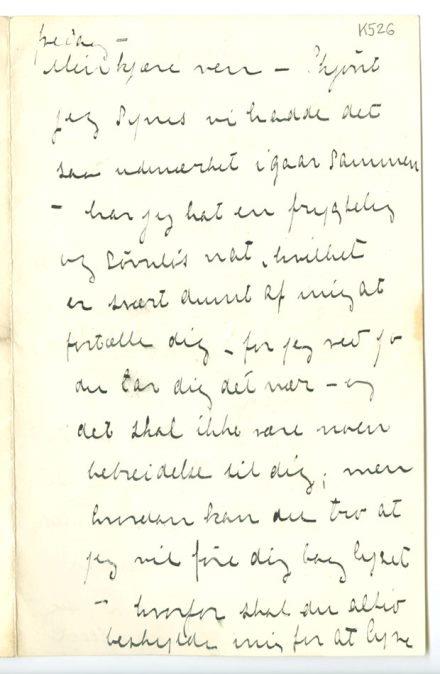 K526
fredag –
Min kjære ven – Skjønt
jeg synes vi hadde det
saa udmerket igaar sammen
– har jeg hat en frygtelig
og søvnløs nat, hvilket
er svært dumt af mig at
fortælle dig – for jeg ved jo
du tar dig det nær – og
det skal ikke være noen
bebreidelse til dig; men
hvordan kan du tro at
jeg vil føre dig bag lyset
– hvorfor skal du altid
beskylde mig for at lyve